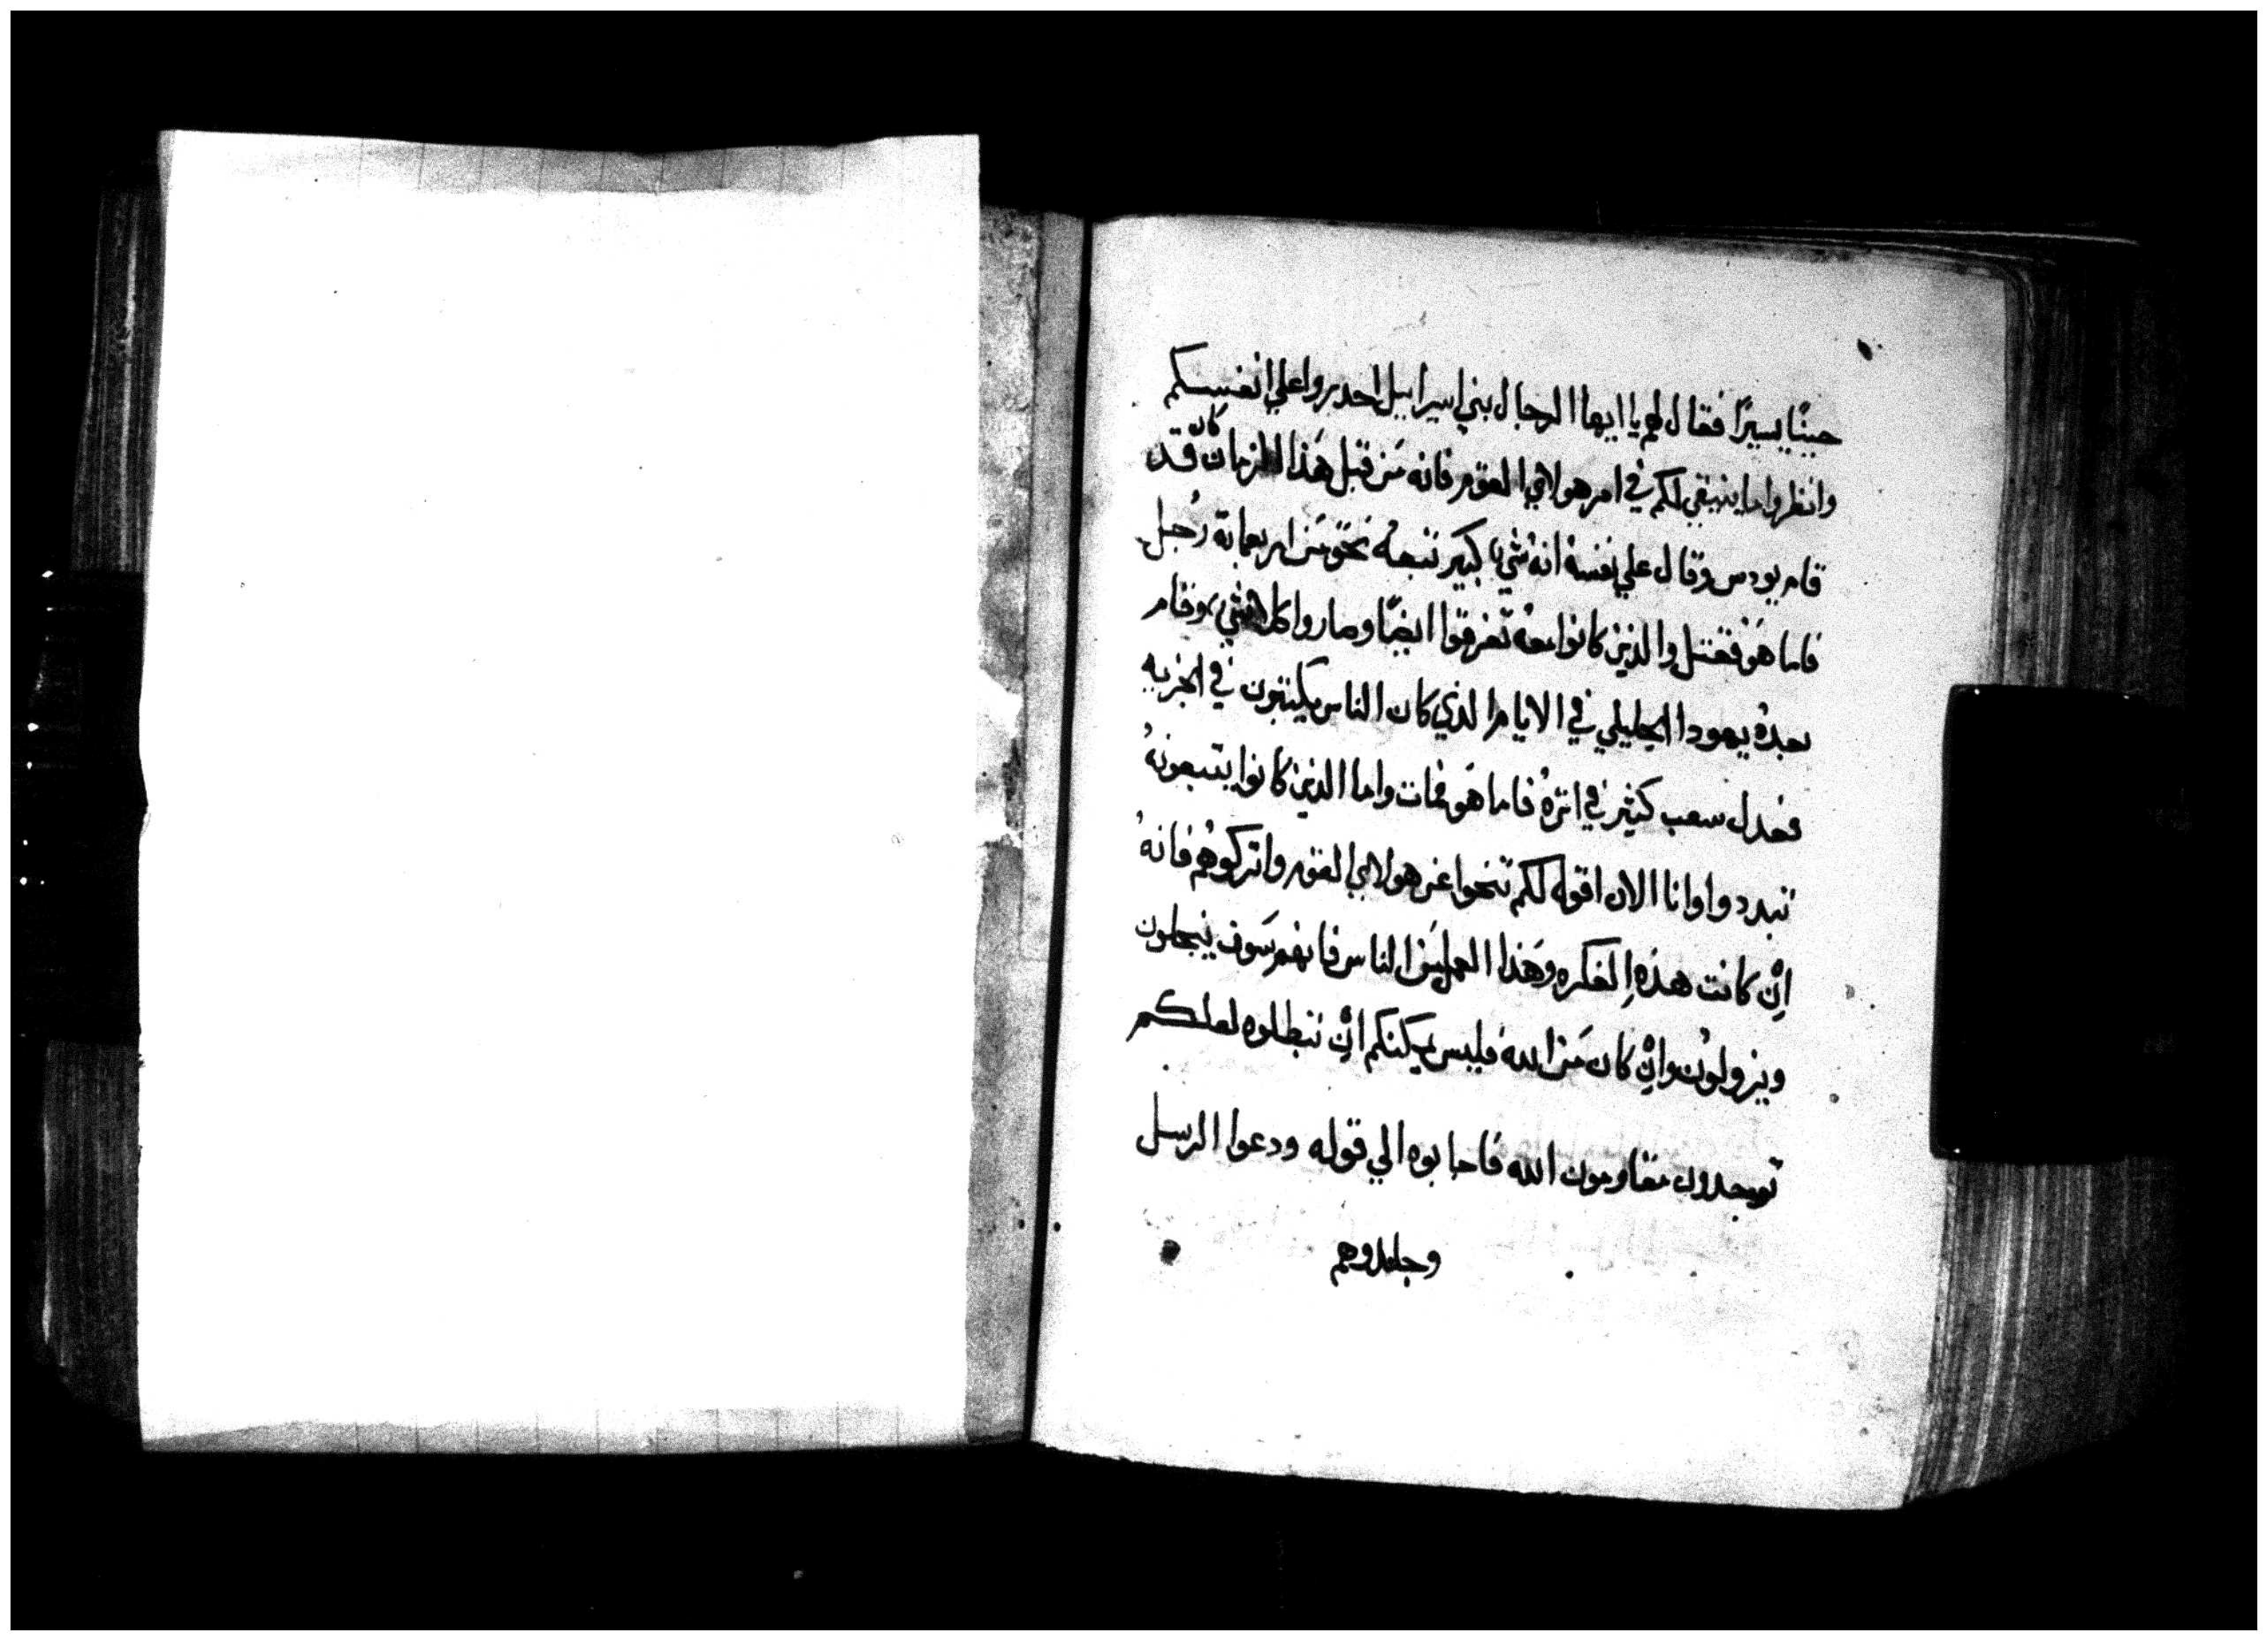 حينًا يسيرًا فقال لهم يا ايها الرجال بني اسراييل احدروا علي انفسكم
وانظروا ما ينبقي لكم في امر هولاي القوم فانه مَن قبل هَذا الزمان كان قد
قام يودس وقال علي نفسه انه شيا كبير تبعه نحو مَن اربعماية رُجل
فاما هَو فقتل والذين كانوا معه تفرقوا ايضًا وصاروا كلا شي وقام
بعده يهودا الجليلي في الايام الذي كان الناس يكتبون في الجزيه
فعدل سعب كثير في اثره فاما هَو فمات واما الذين كانوا يتبعونهُ
تبددوا وانا الان اقول لكم تنحوا عن هولاي القوم واتركوهُم فانهُ
اِن كانت هذه الفكره وهَذا العمل مَن الناس فانهم سَوف ينحلون
ويزولون وان كان مَن الله فليس يمكنكم ان تبطلوه لعلكم
توجدون مقاومون الله فاجابوه الي قوله ودعوا الرسل
وجلدوهم